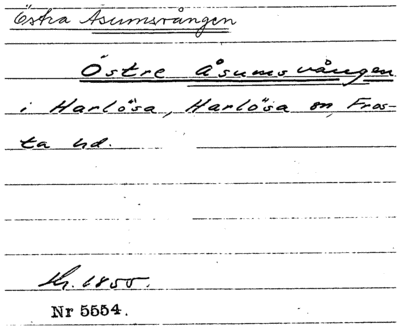 Östra Åsumsvången
Östre Åsumsvången
i Harlösa, Harlösa sn, Fros-
ta hd.
Nr 5554.